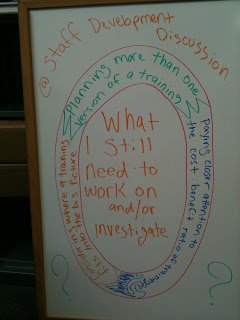 @ Staff Development
Discussion
Planning more than one
version of a training
paying closer attention to
the cost benefit ratio of trainings
Considering where a training
fits into the big picture
What
I Still
need to
work on
and/or
investigate
?
?